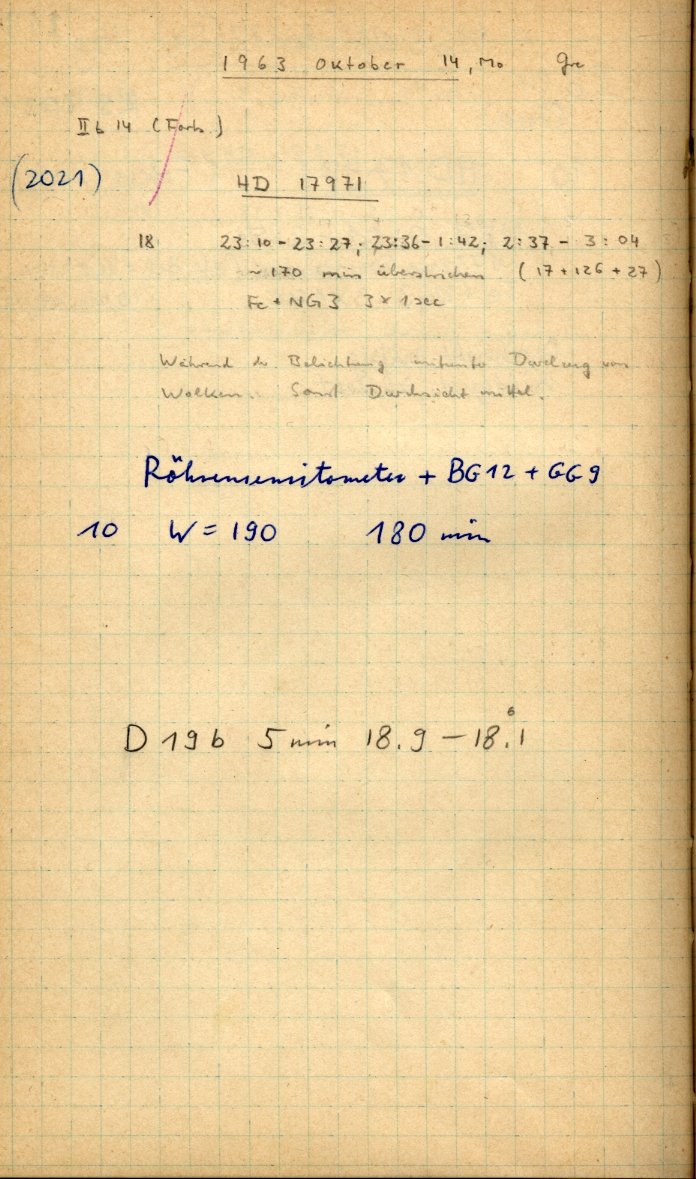 1963 Oktober 14, Mo Gre
II b 14 (Farb.)
(2021)
HD 17971
18 23:10 - 23:27; 23:36 - 1:42; 2:37 - 3:04
~ 170 min überstrichen (17 + 126 + 27)
Fe + NG3 3 x 1 sec
Während der Belichtung mitunter Durchzug von
Wolken. Sonst Durchsicht mittel.
Röhrensensitometer + BG12 + GG9
10 W = 190 180 min
D 19 b 5 min 18.9 - 18.1
6